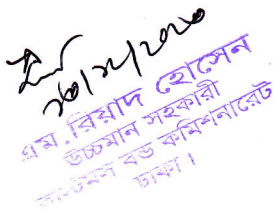 ২৩/১২/২০২০
এম. রিয়াদ হোসেন
উচ্চমান সহকারী
কাস্টমস বন্ড কমিশনারেট
ঢাকা।